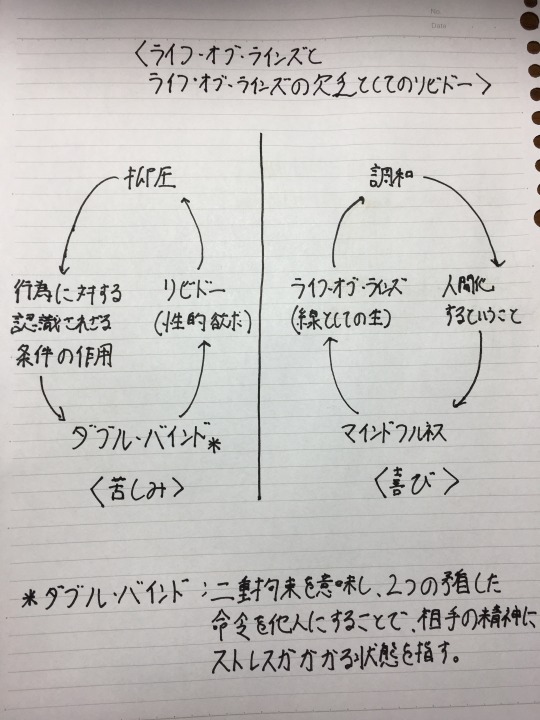 No.
Date
〈ライフ・オブ・ラインズと
ライフ・オブ・ラインズの欠乏としてのリビドー〉
抑圧
行為に対する
認識されざる
条件の作用
リビドー
(性的欲求)
ダブル・バインド*
〈苦しみ〉
調和
ライフ・オブ・ラインズ
(線としての生)
人間化
するということ
マインドフルネス
〈喜び〉
*ダブル・バインド:二重拘束を意味し、2つの矛盾した
命令を他人にすることで、相手の精神に
ストレスがかかる状態を指す。